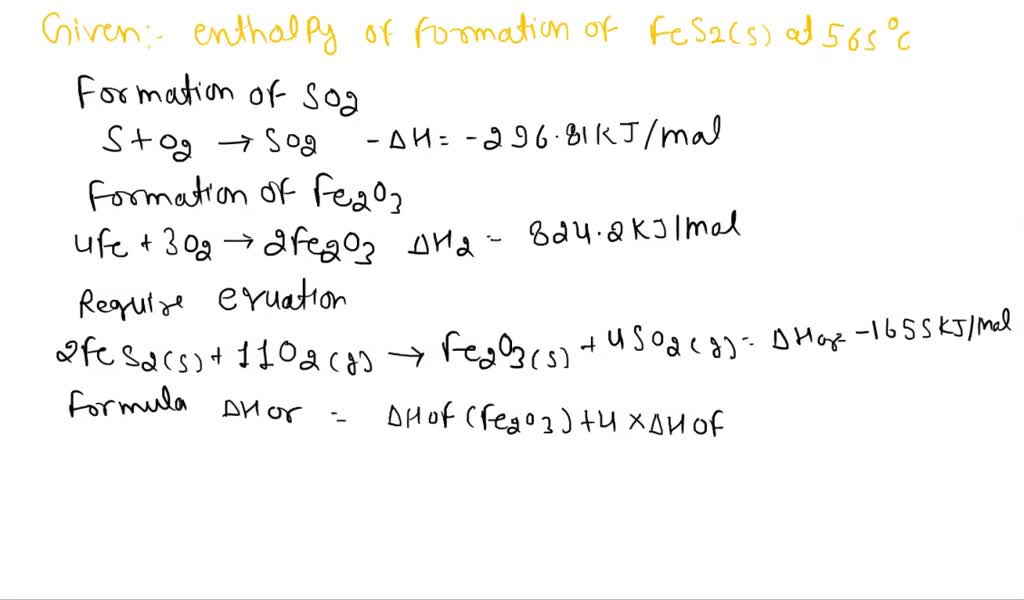 Given:- enthalpy of formation of FeS2(s) at 565°C
Formation of SO2
S+O2 → SO2 -ΔH = -296.81KJ/mol
Formation of Fe2O3
4fe + 3O2 → 2Fe2O3 ΔH2 = 824.2KJ/mol
Require equation
2FeS2(s) + 11O2(g) → Fe2O3(s) + 4SO2(g) = ΔHor = -1655KJ/mol
Formula ΔHor = ΔHof (Fe2O3) + 4 × ΔHof